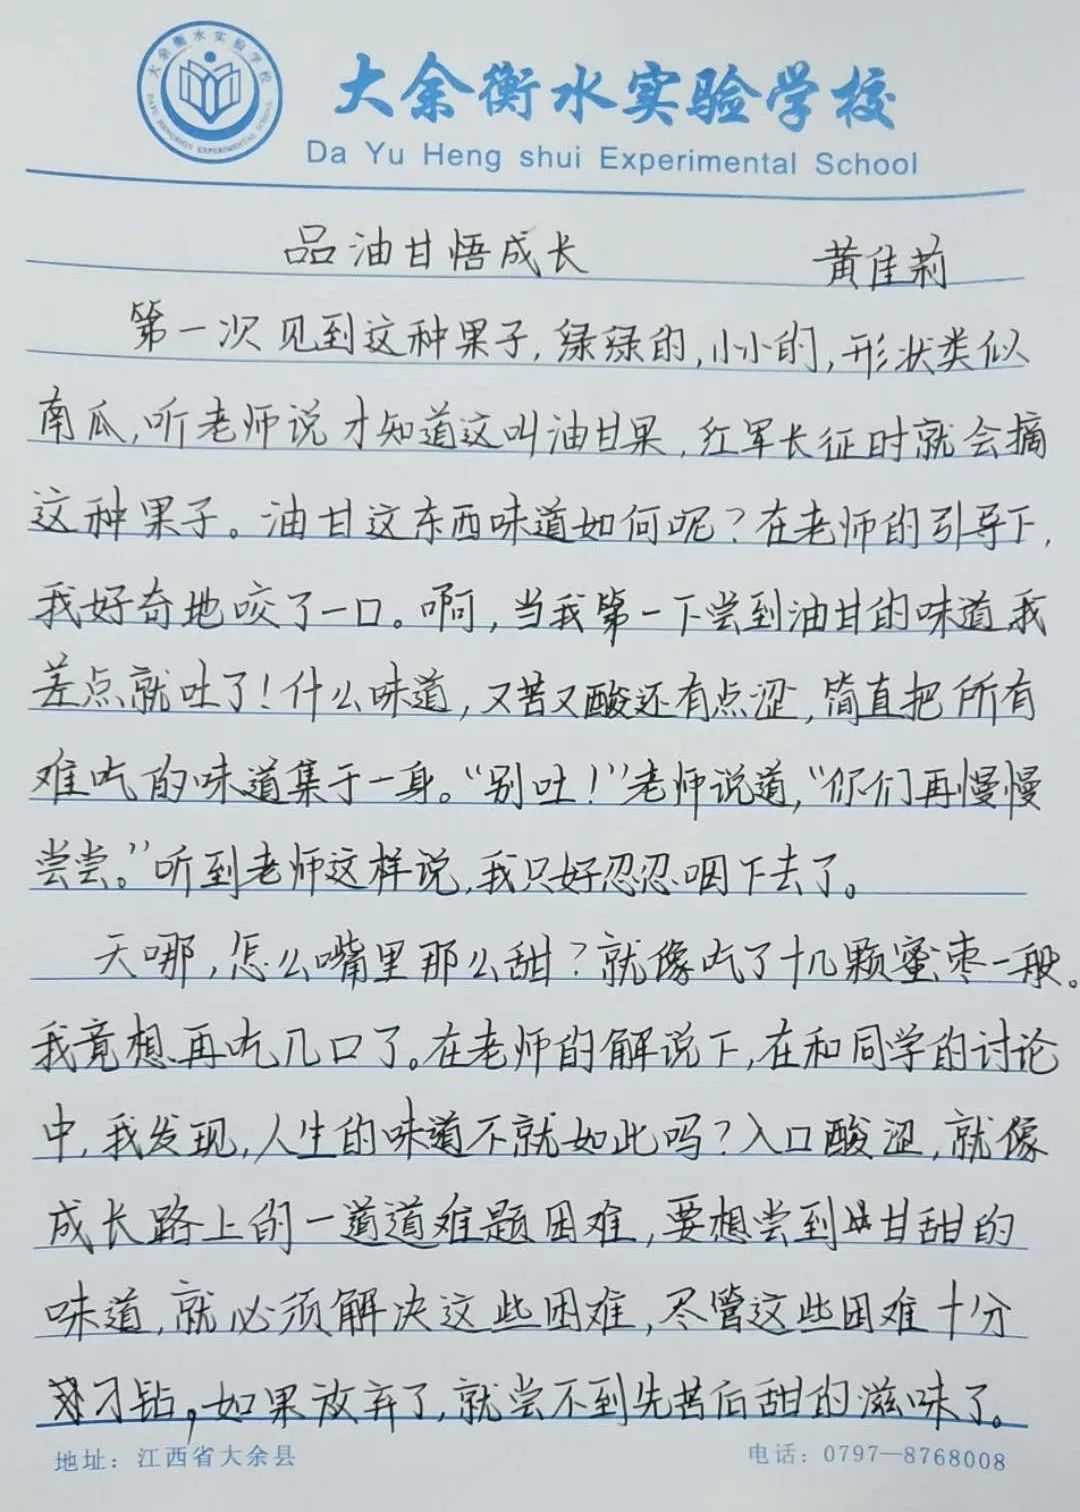 大余衡水实验学校
DAYU HENGSHUI EXPERIMENTAL SCHOOL
大余衡水实验学校
Da Yu Heng shui Experimental School
品油甘悟成长 黄佳莉
第一次见到这种果子,绿绿的,小小的,形状类似
南瓜,听老师说才知道这叫油甘果,红军长征时就会摘
这种果子。油甘这东西味道如何呢?在老师的引导下,
我好奇地咬了一口。啊,当我第一下尝到油甘的味道,我
差点就吐了!什么味道,又苦又酸还有点涩,简直把所有
难吃的味道集于一身。“别吐!”老师说道,“你们再慢慢
尝尝。”听到老师这样说,我只好忍忍咽下去了。
天哪,怎么嘴里那么甜?就像吃了十几颗蜜枣一般。
我竟想再吃几口了。在老师的解说下,在和同学的讨论
中,我发现,人生的味道不就如此吗?入口酸涩,就像
成长路上的一道道难题困难,要想尝到甘甜的
味道,就必须解决这些困难,尽管这些困难十分
刁钻,如果放弃了,就尝不到先苦后甜的滋味了。
地址:江西省大余县 电话:0797—8768008